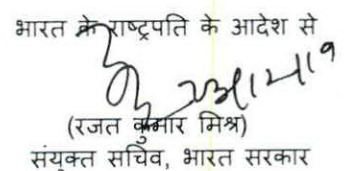 भारत के राष्ट्रपति के आदेश से
(रजत कुमार मिश्र)
संयुक्त सचिव, भारत सरकार